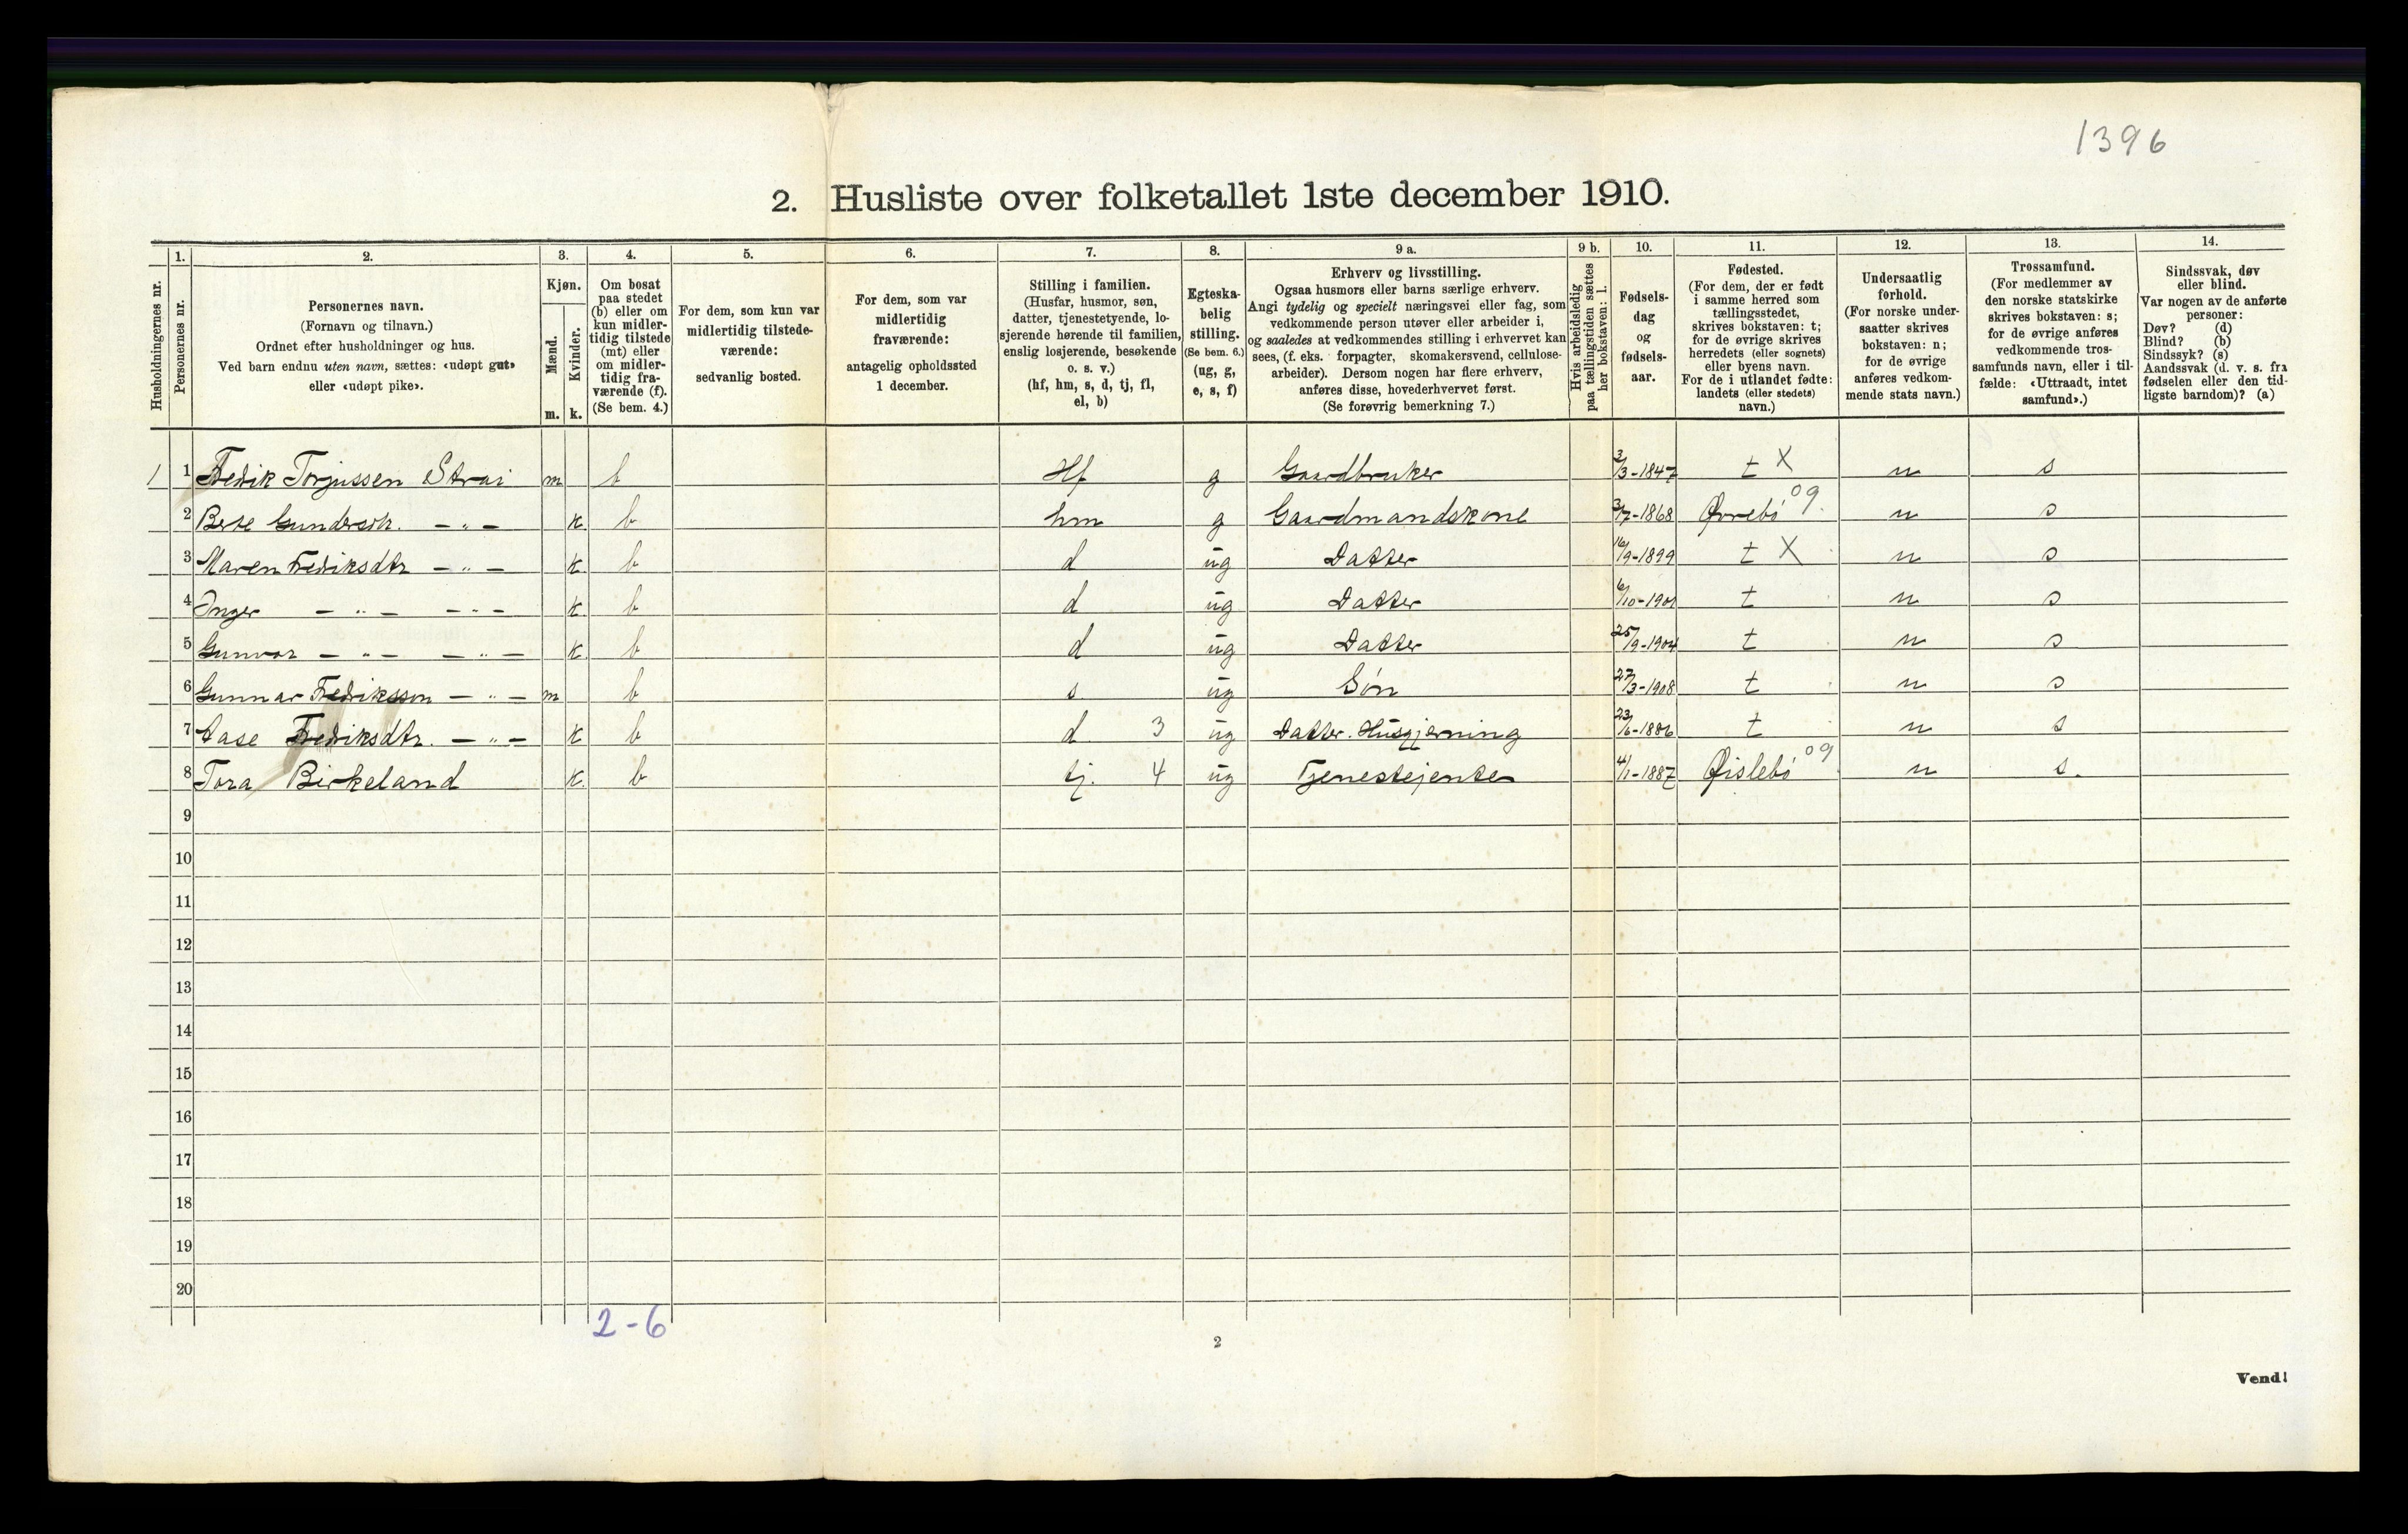 1396
2. Husliste over folketallet 1ste december 1910.
Husholdningernes nr.
1.
Personernes nr.
2.
Personernes navn.
(Fornavn og tilnavn.)
Ordnet efter husholdninger og hus.
Ved barn endnu uten navn, sættes: «udøpt gut»
eller «udøpt pike».
3.
Kjøn.
Mænd.
m.
Kvinder.
k.
4.
Om bosat
paa stedet
(b) eller om
kun midler-
tidig tilstede
(mt) eller
om midler-
tidig fra-
værende (f).
(Se bem. 4.)
5.
For dem, som kun var
midlertidig tilstede-
værende:
sedvanlig bosted.
6.
For dem, som var
midlertidig
fraværende:
antagelig opholdssted
1 december.
7.
Stilling i familien.
(Husfar, husmor, søn,
datter, tjenestetyende, lo-
sjerende hørende til familien,
enslig losjerende, besøkende
o. s. v.)
(hf, hm, s, d, tj, fl,
el, b)
8.
Egteska-
belig
stilling.
(Se bem. 6.)
(ug, g,
e, s, f)
9 a.
Erhverv og livsstilling.
Ogsaa husmors eller barns særlige erhverv.
Angi tydelig og specielt næringsvei eller fag, som
vedkommende person utøver eller arbeider i,
og saaledes at vedkommendes stilling i erhvervet kan
sees, (f. eks. forpagter, skomakersvend, cellulose-
arbeider). Dersom nogen har flere erhverv,
anføres disse, hovederhvervet først.
(Se forøvrig bemerkning 7.)
9 b.
Hvis arbeidsledig
paa tællingstiden sættes
her bokstaven: l.
10.
Fødsels-
dag
og
fødsels-
aar.
11.
Fødested.
(For dem, der er født
i samme herred som
tællingsstedet,
skrives bokstaven: t;
for de øvrige skrives
herredets (eller sognets)
eller byens navn.
For de i utlandet fødte:
landets (eller stedets)
navn.)
12.
Undersaatlig
forhold.
(For norske under-
saatter skrives
bokstaven: n;
for de øvrige
anføres vedkom-
mende stats navn.)
13.
Trossamfund.
(For medlemmer av
den norske statskirke
skrives bokstaven: s;
for de øvrige anføres
vedkommende tros-
samfunds navn, eller i til-
fælde: «Uttraadt, intet
samfund».)
14.
Sindssvak, døv
eller blind.
Var nogen av de anførte
personer:
Døv? (d)
Blind? (b)
Sindssyk? (s)
Aandssvak (d. v. s. fra
fødselen eller den tid-
ligste barndom)? (a)
1 1 Fedik Torjussen Strai m b Hf g Gaardbruker 3/3-1847 t X n s
2 Berte Gundersdtr. – „ – k b hm g Gaardmandskone 3/7-1868 Øvrebö 09 n s
3 Maren Fediksdtr – „ – k b d ug Datter 16/9-1899 t X n s
4 Inger – „ – – „ – k b d ug Datter 6/10-1901 t n s
5 Gunvor – „ – – „ – k b d ug Datter 25/9-1904 t n s
6 Gunnar Fedriksson – „ – m b s ug Sön 27/3-1908 t n s
7 Aase Fediksdtr. – „ – k b d 3 ug Datter. Husgjerning 23/6-1886 t n s
8 Tora Birkeland k b tj. 4 ug Tjenestejente 4/1-1887 Øislebö 09 n s.
9
10
11
12
13
14
15
16
17
18
19
20
2-6
2
Vend!